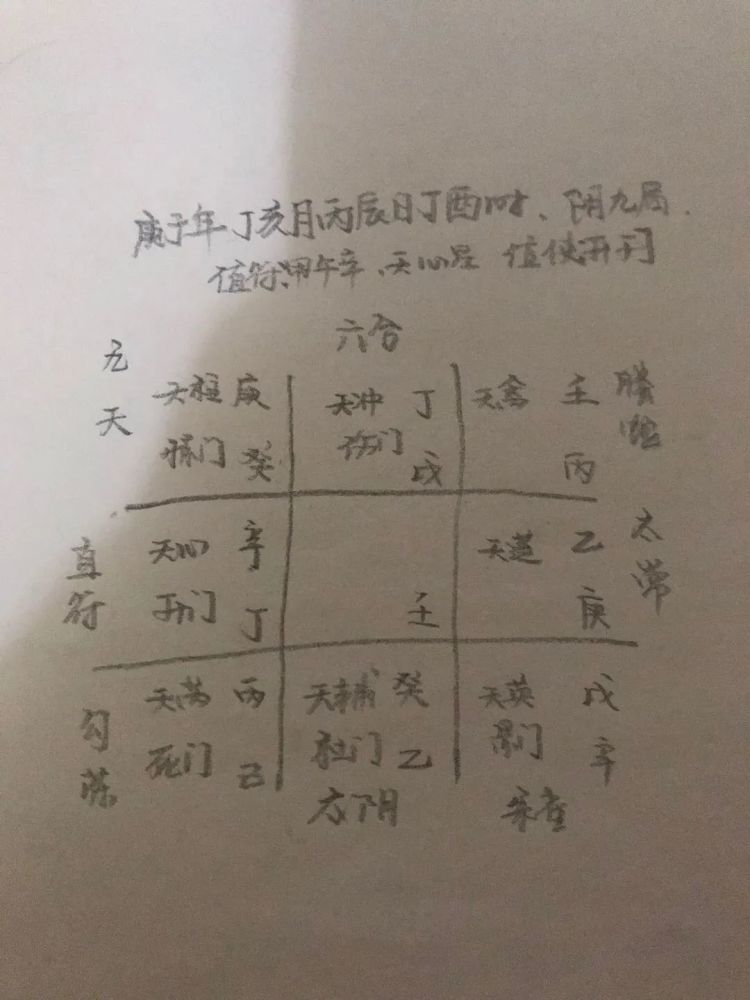 庚子年丁亥月丙辰日丁酉时、阴九局.
值符:甲午辛、天心星 值使开门
六合
九天 天柱 庚 天冲 丁 天禽 壬 螣蛇
惊门 癸 伤门 戊 丙
直符 天心 辛 天蓬 乙 太常
开门 丁 壬 庚
勾陈 天芮 丙 天辅 癸 天英 戊
死门 己 杜门 乙 景门 辛
太阴